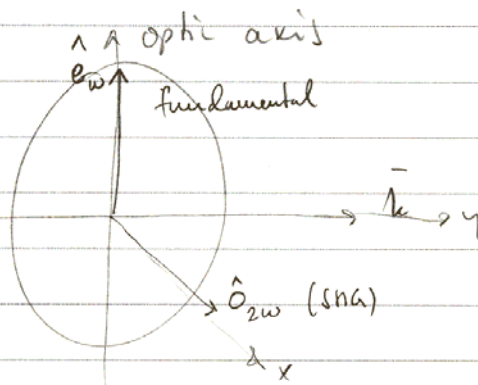 optic axis
ê_ω
fundamental
k̄
y
Ô_2ω (SHG)
x